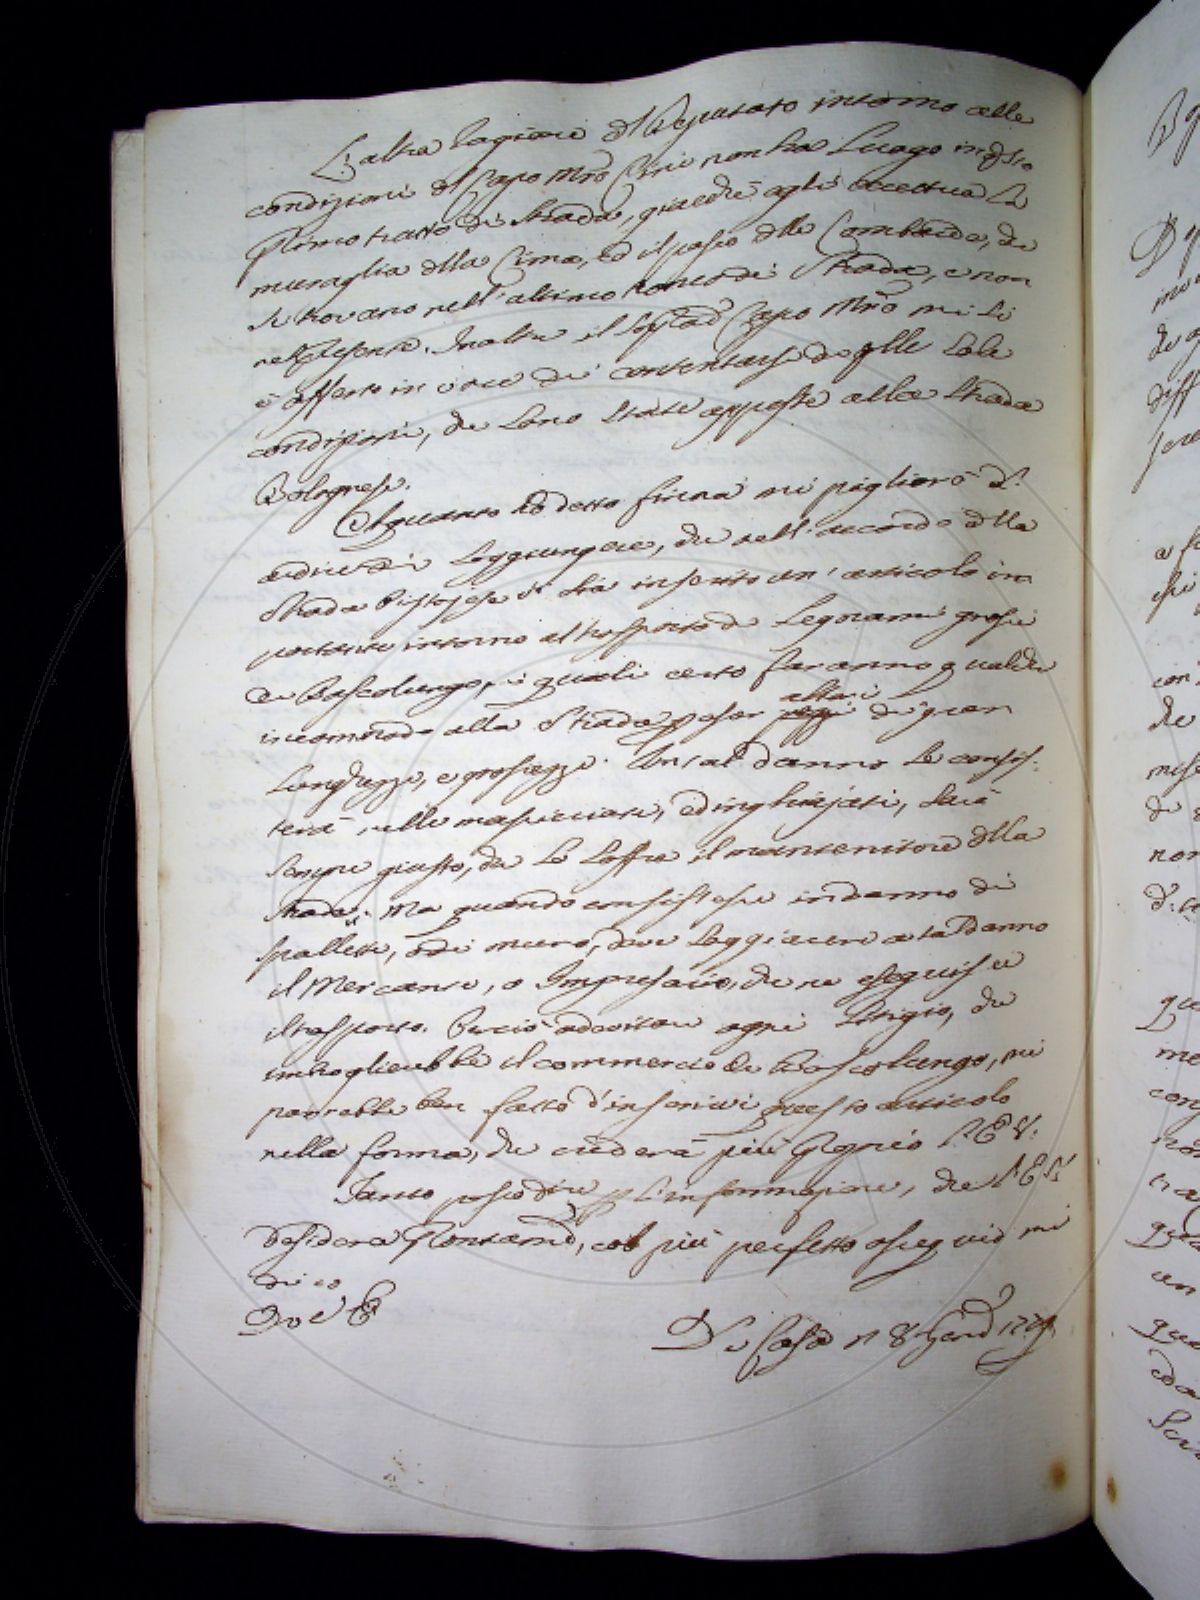 L'altra ragione dl Deputato intorno alle
condizioni dl Capo Mrõ Cini non ha Luogo in qsto
primo tratto di Strada, giacchè egli eccettua la
muraglia dlla Cima, ed il passo dlle Lombarde, che
si trovano nell'ultimo tronco di Strada, e non
nel presente. Inoltre il Capo Mrõ mi si
è offerto in voce di contentarsi di qlle sole
condizioni, che sono state apposte alla Strada
Bolognese.
A quanto hò detto finora mi piglierò d.
ardire di soggiungere, che nell'accordo dlla
Strada Pistojese vi stia inserito un'articolo im
portante intorno al trasporto de Legnami grossi
di Boscolungo, i quali certo faranno qualche
incommodo alla Strada p esser alberi di gran
lunghezze, e grossezze. Un tal danno se consis:
terà nelle massicciate, ed inghiajati, sarà
sempre giusto, che Lo soffra il mantenitore dlla
Strada; Ma quando consistesse in danno di
spallette, ò di muro, deve soggiacere a tal danno
il Mercante, o Impresario, che ne eseguisce
il trasporto. Perciò ad evitare ogni Litigio, che
imbroglierebbe il commercio di Boscolungo, mi
parrebbe ben fatto d'inserirvi questo articolo
nella forma, che crederà più propria l'E V:
Tanto posso dire p L'informazione, che l'E S.
desidera e col più perfetto ossequio mi
dico
D V E
Di Casa li 8